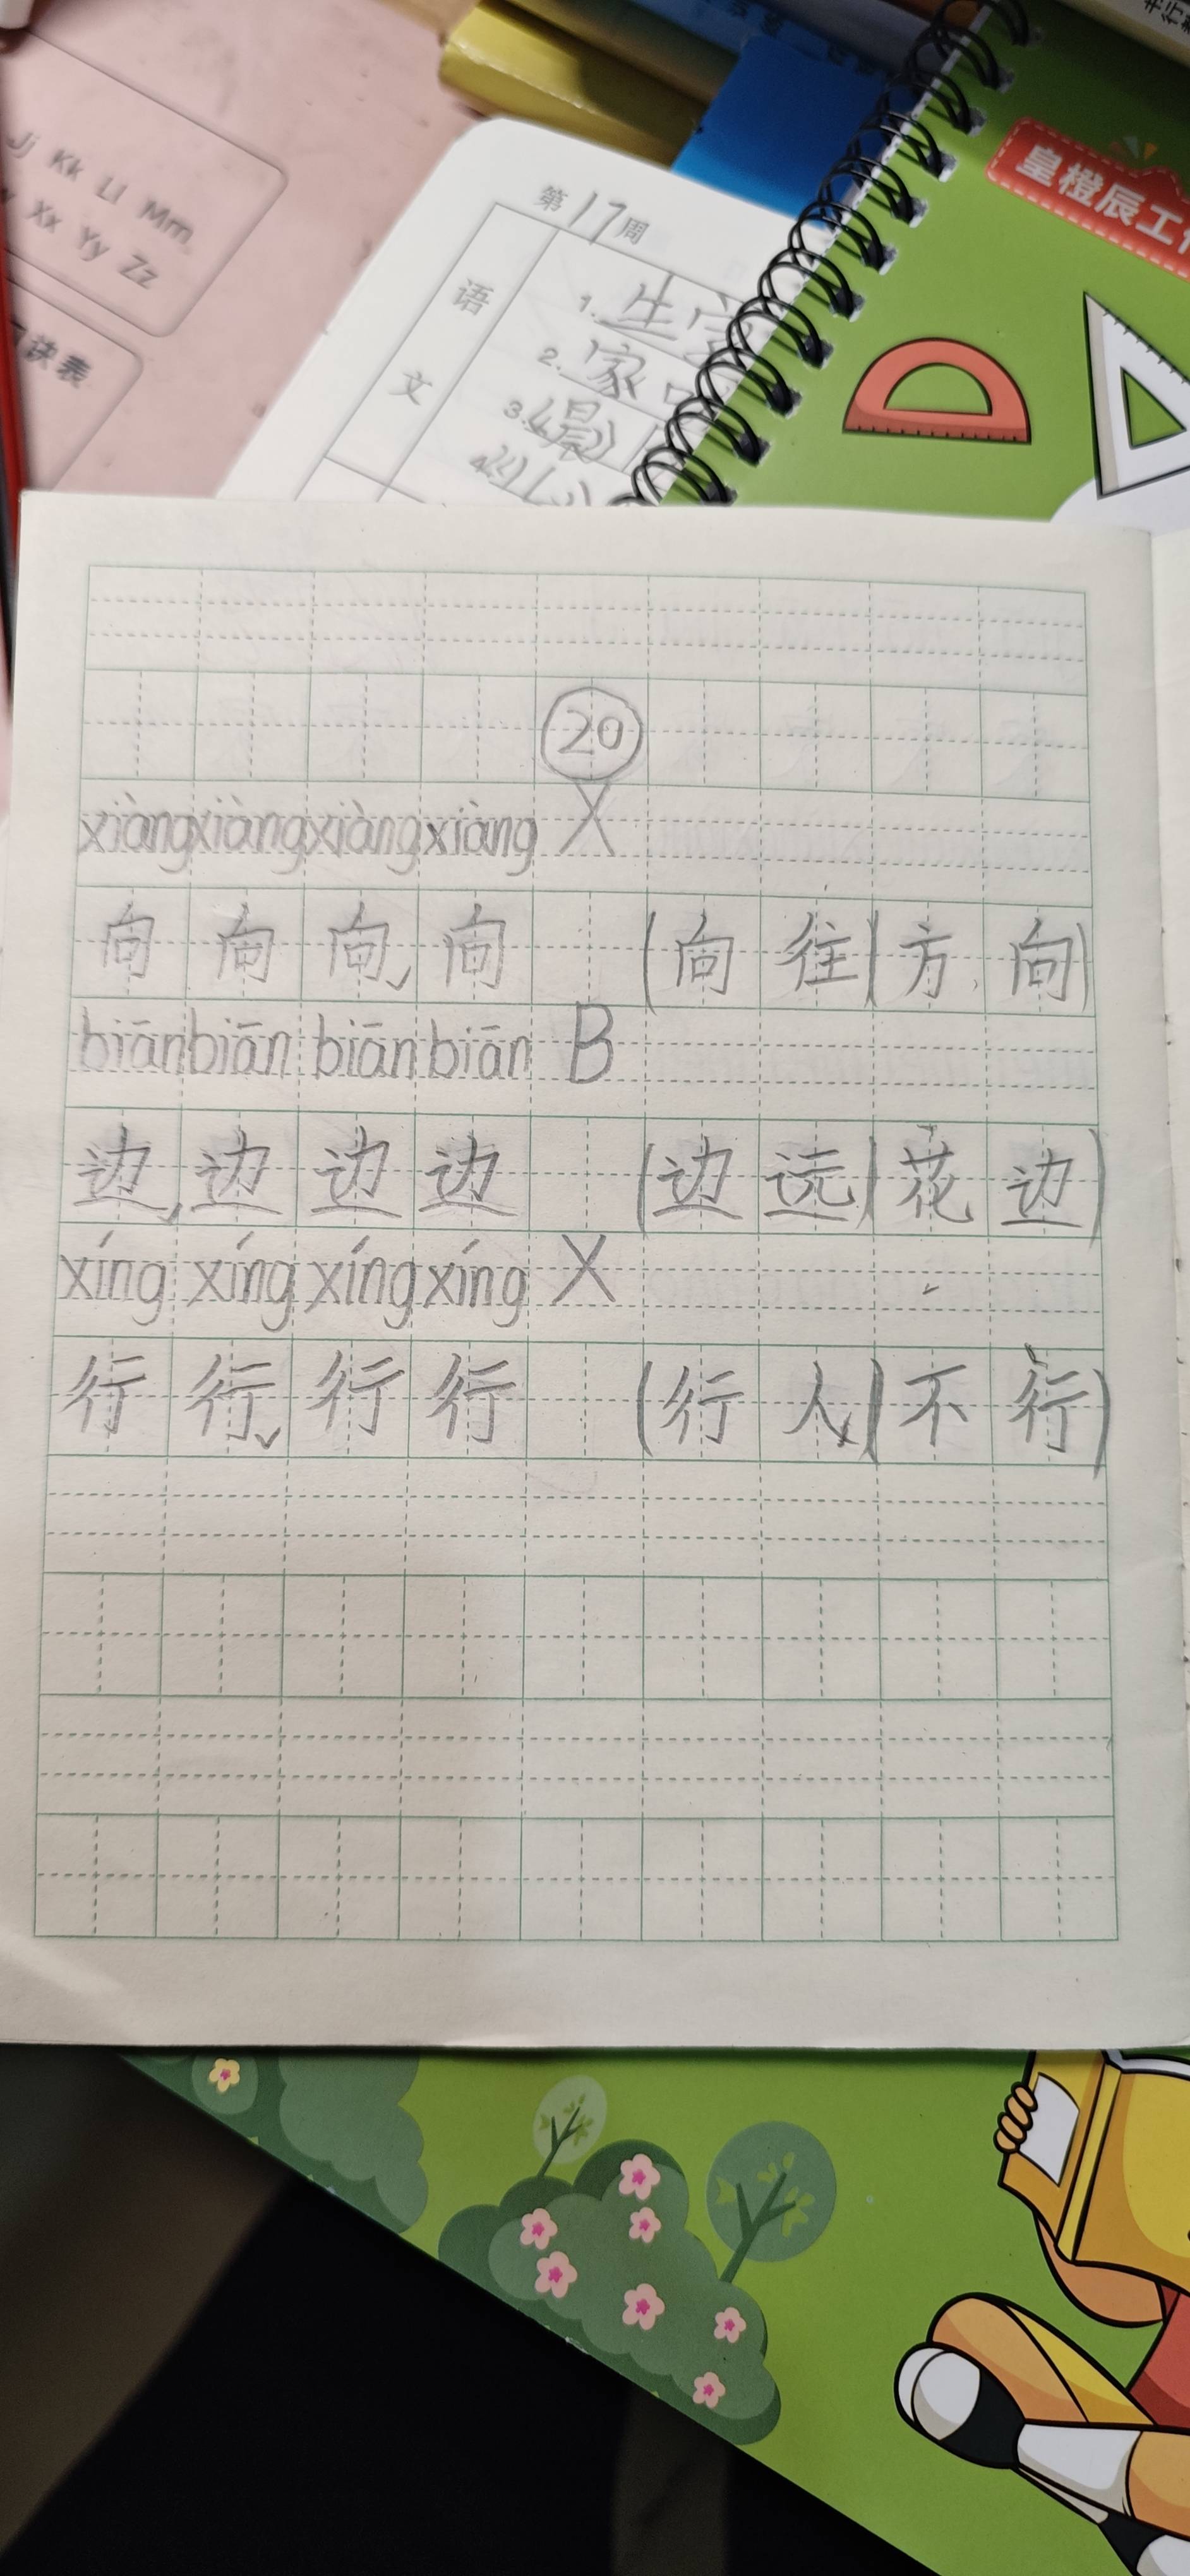 Jj Kk Ll Mm
Xx Yy Zz
诀表
皇橙辰工
第17周
语文
1.生字
2.家
3.《晨》
4.
20
xiàng xiàng xiàng xiàng X
向 向 向 向 (向往)方向)
biān biān biān biān B
边 边 边 边 (边远)花边)
xíng xíng xíng xíng X
行 行 行 行 (行人)不行)